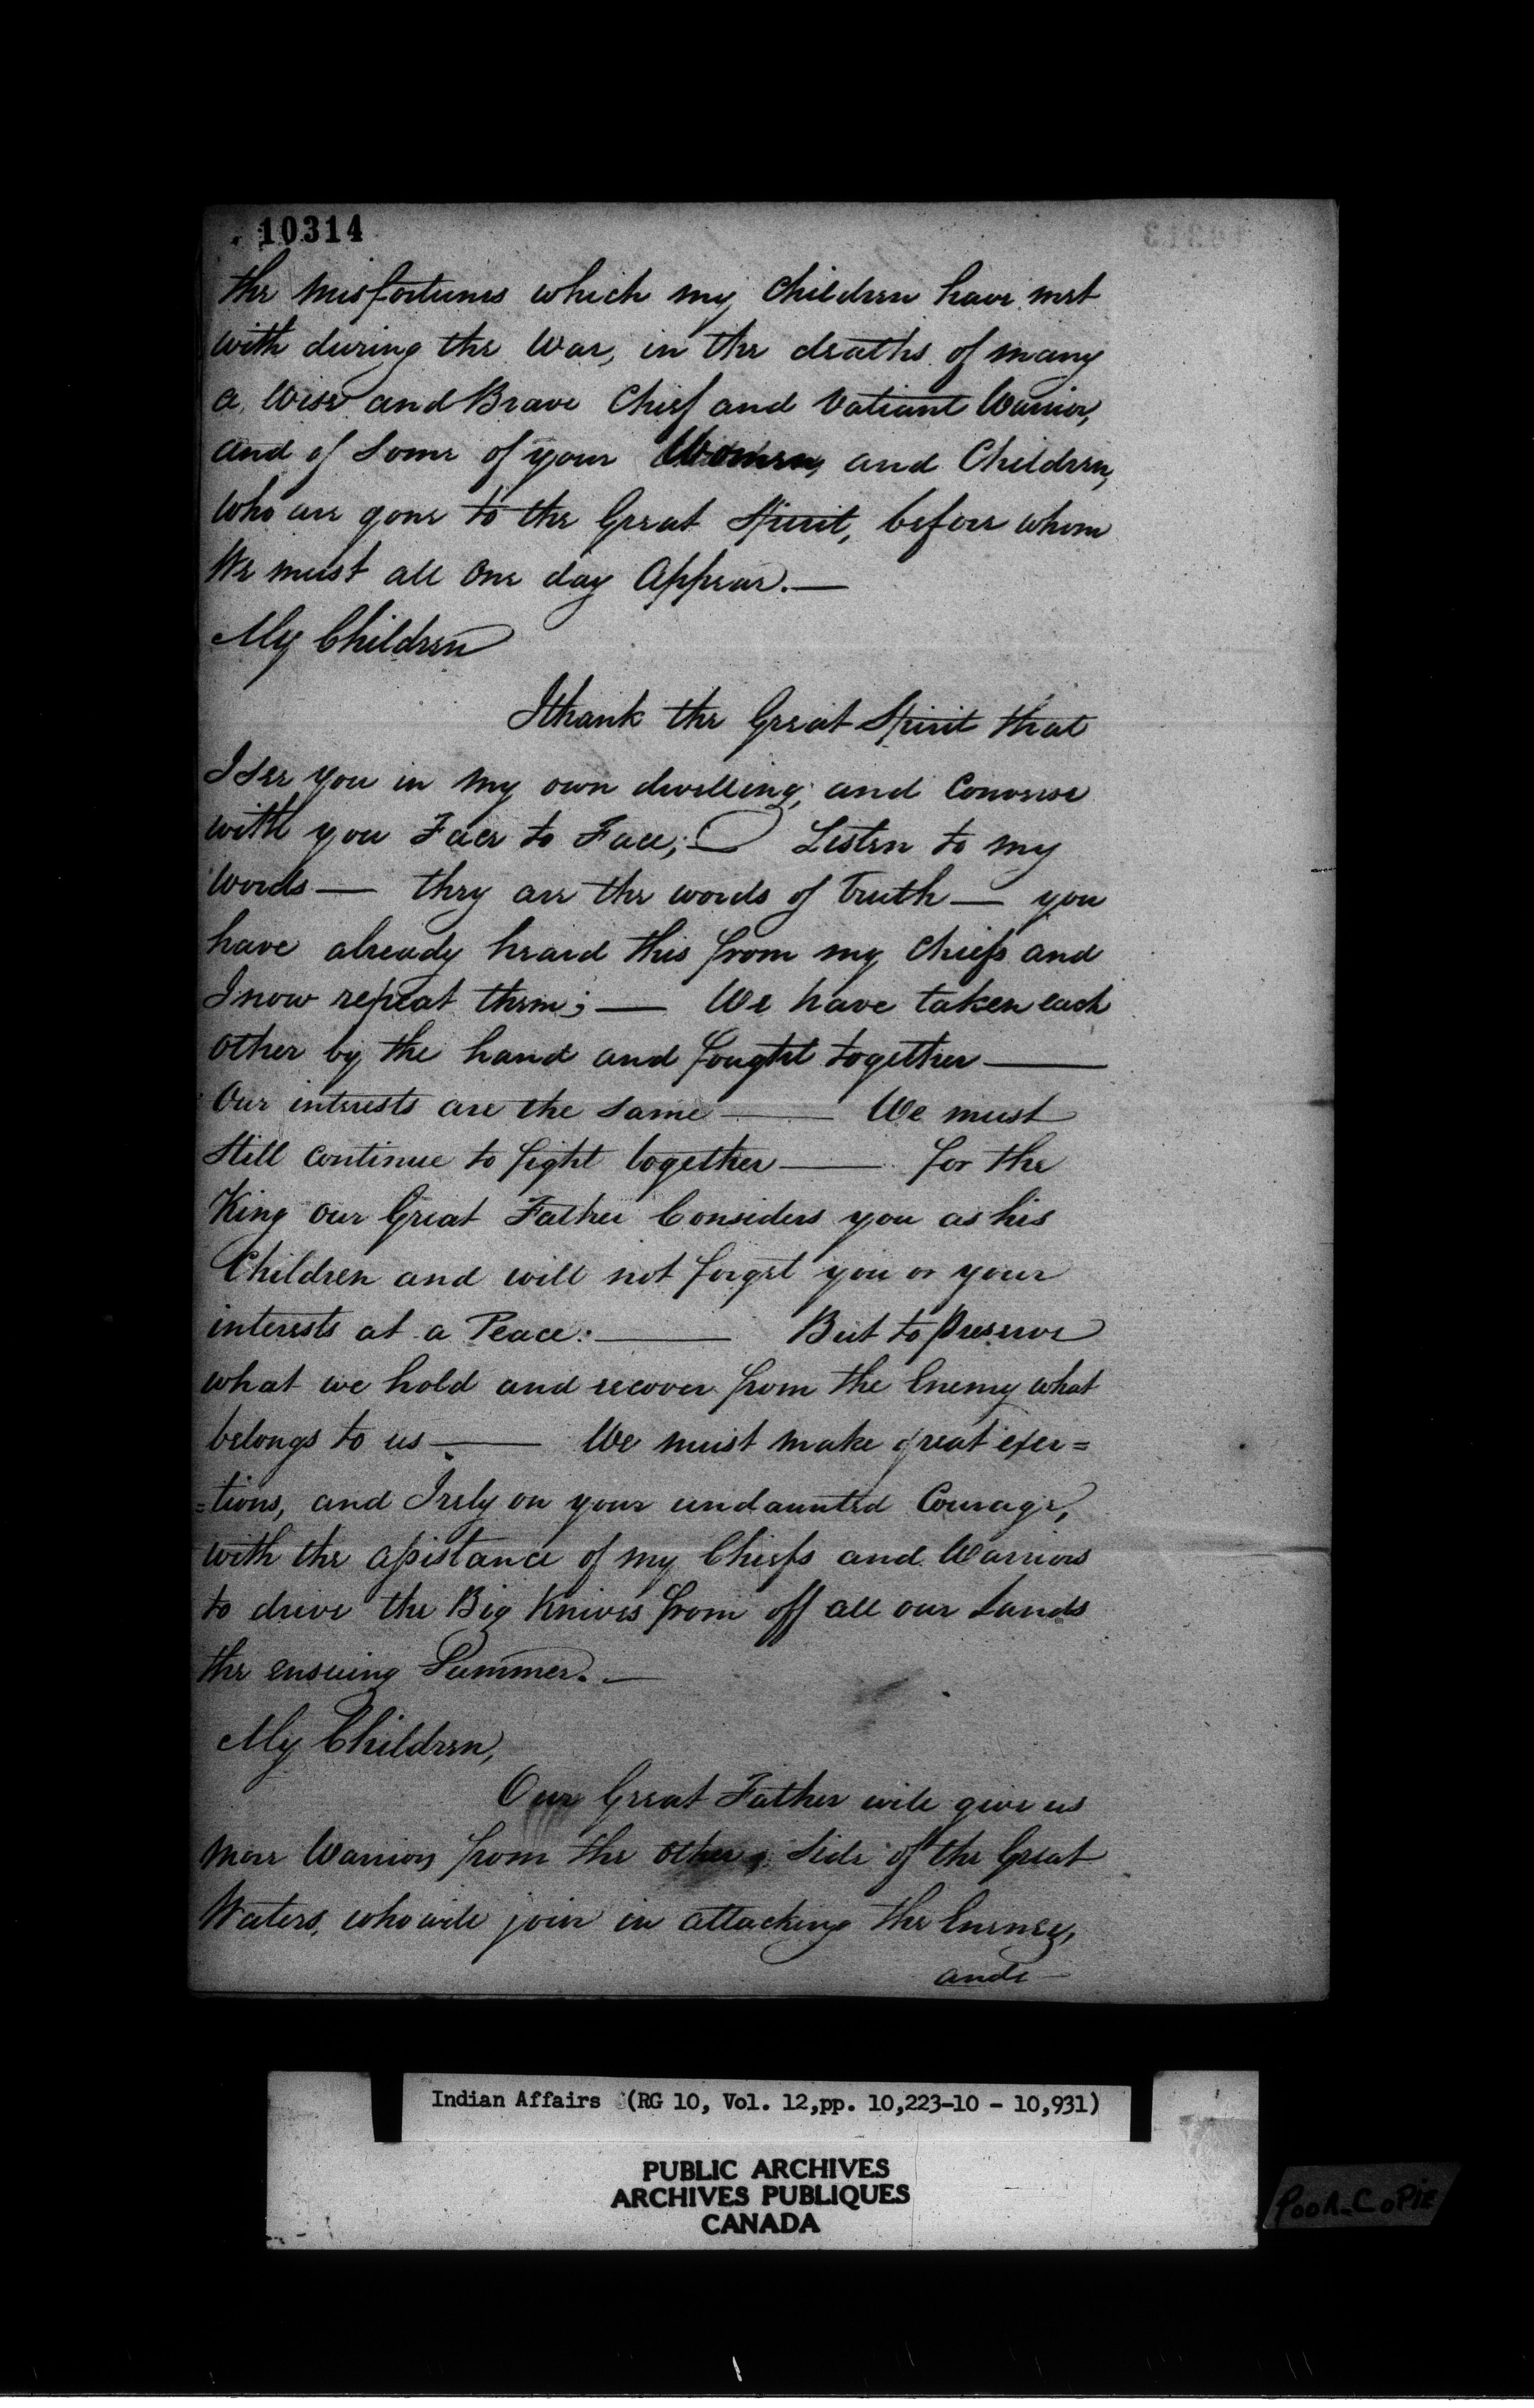 10314
the misfortunes which my Children have met
with during the War, in the deaths of many
a Wise and Brave Chief and Valiant Warrior,
and of some of your Women, and Children,
who are gone to the Great Spirit, before whom
We must all one day Appear.—
My Children
I thank the Great Spirit that
I see you in my own dwelling, and Converse
with you Face to Face;— Listen to my
Words — they are the words of Truth — you
have already heard this from my Chiefs and
I now repeat them; — We have taken each
other by the hand and fought together —
Our interests are the same — We must
still continue to fight together — for the
King our Great Father Considers you as his
Children and will not forget you or your
interests at a Peace: — But to preserve
what we hold and recover from the Enemy what
belongs to us — We must make great exer=
=tions, and I rely on your undaunted Courage,
with the assistance of my Chiefs and Warriors
to drive the Big Knives from off all our Lands
the ensuing Summer. —
My Children,
Our Great Father will give us
more Warriors from the other side of the Great
Waters, who will join in attacking the Enemy,
and
Indian Affairs (RG 10, Vol. 12,pp. 10,223-10 - 10,931)
PUBLIC ARCHIVES
ARCHIVES PUBLIQUES
CANADA
POOR COPIE